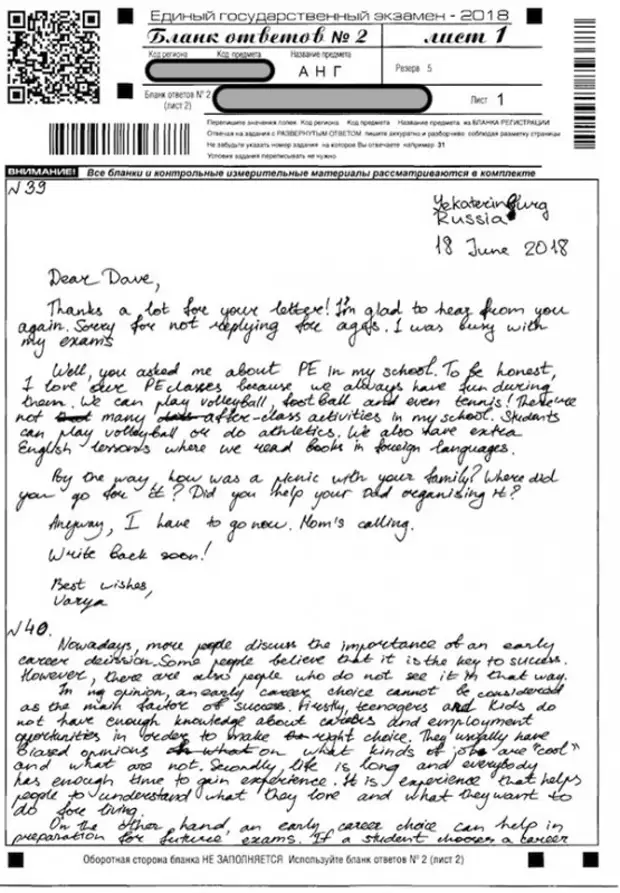 Единый государственный экзамен - 2018
Бланк ответов № 2 лист 1
Код региона Код предмета Название предмета
АНГ
Резерв 5
Бланк ответов № 2 (лист 2)
Лист 1
Перепишите значения полей Код региона Код предмета Название предмета из БЛАНКА РЕГИСТРАЦИИ
Отвечая на задания с РАЗВЕРНУТЫМ ОТВЕТОМ пишите аккуратно и разборчиво соблюдая разметку страницы
Не забудьте указать номер задания на которое Вы отвечаете например 31
Условия задания переписывать не нужно
ВНИМАНИЕ! Все бланки и контрольные измерительные материалы рассматриваются в комплекте
N 39
Yekaterinburg
Russia
18 June 2018
Dear Dave,
Thanks a lot for your letter! I'm glad to hear from you
again. Sorry for not replying for ages. I was busy with
my exams
Well, you asked me about PE in my school. To be honest,
I love our PE classes because we always have fun during
them. We can play volleyball, football and even tennis! There are
not many after-class activities in my school. Students
can play volleyball or do athletics. We also have extra
English lessons where we read books in foreign languages.
By the way, how was a picnic with your family? Where did
you go for it? Did you help your Dad organising it?
Anyway, I have to go now. Mom's calling.
Write back soon!
Best wishes,
Varya
N 40.
Nowadays, more people discuss the importance of an early
career decision. Some people believe that it is the key to success.
However, there are also people who do not see it in that way.
In my opinion, an early career choice cannot be considered
as the main factor of success. Firstly, teenagers and kids do
not have enough knowledge about careers and employment
opportunities in order to make right choice. They usually have
biased opinions on what kinds of jobs are "cool"
and what are not. Secondly, life is long and everybody
has enough time to gain experience. It is experience that helps
people to understand what they love and what they want to
do for living.
On the other hand, an early career choice can help in
preparation for future exams. If a student chooses a career
Оборотная сторона бланка НЕ ЗАПОЛНЯЕТСЯ Используйте бланк ответов № 2 (лист 2)